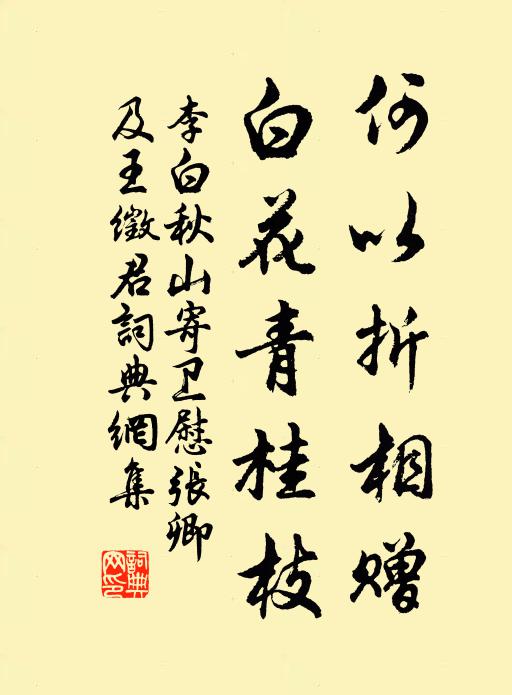 何以折相赠
白花青桂枝
李白秋山寄卫慰張卿
及王徵君詞典網集
詞典網印